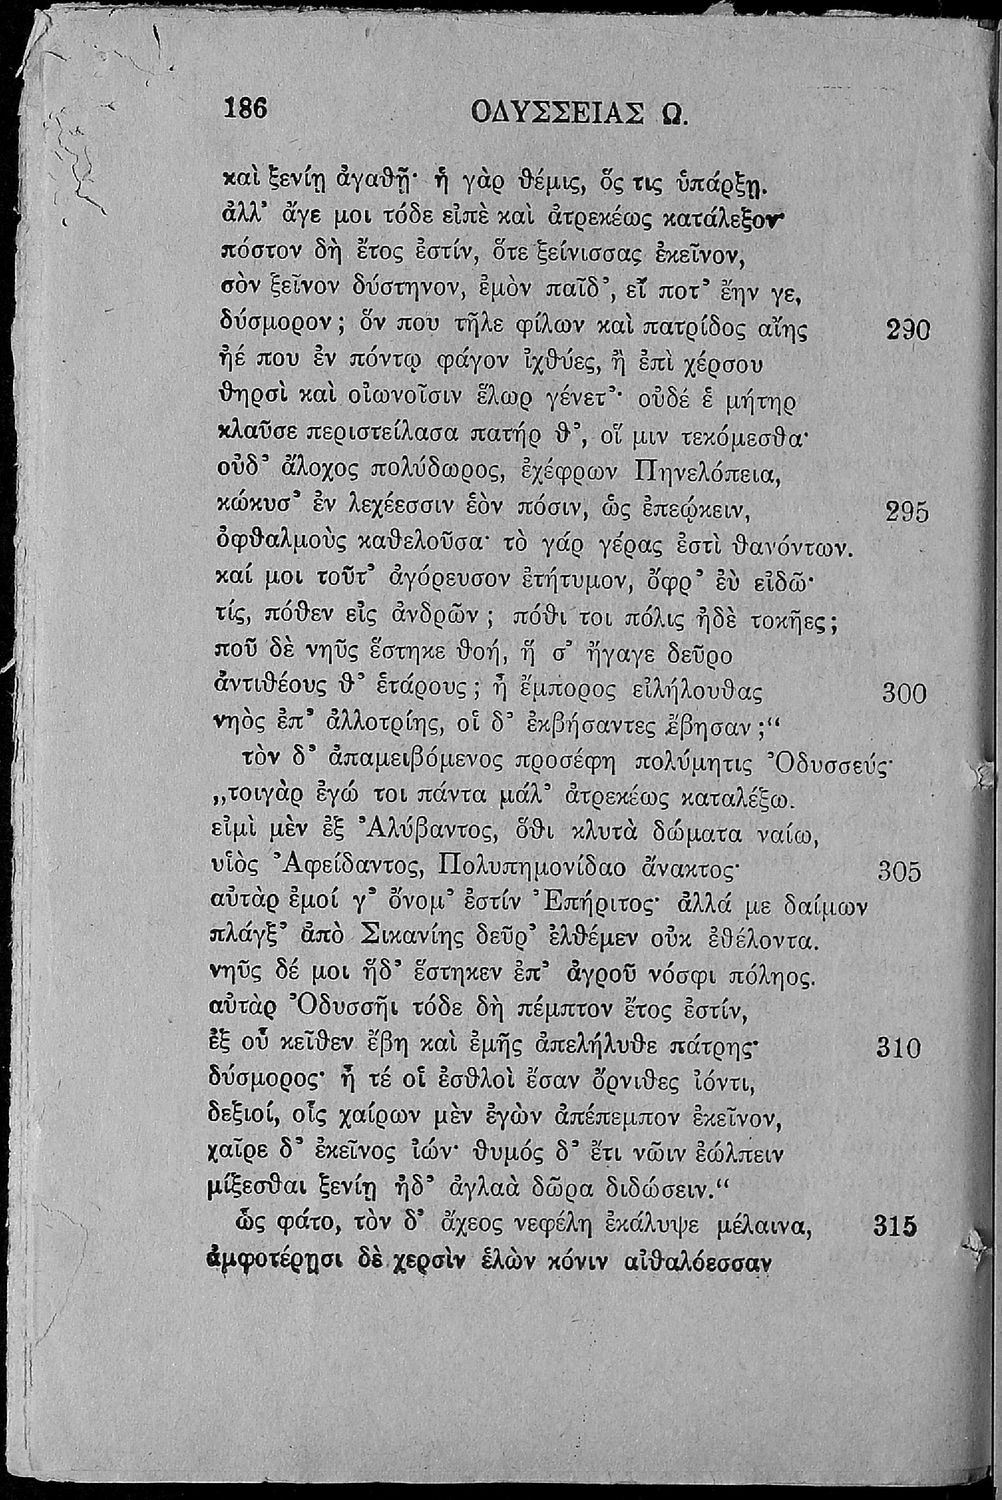 186 ΟΔΥΣΣΕΙΑΣ Ω.
καὶ ξενίῃ ἀγαθῇ· ἡ γὰρ θέμις, ὅς τις ὑπάρξῃ.
ἀλλ' ἄγε μοι τόδε εἰπὲ καὶ ἀτρεκέως κατάλεξον·
πόστον δὴ ἔτος ἐστίν, ὅτε ξείνισσας ἐκεῖνον,
σὸν ξεῖνον δύστηνον, ἐμὸν παῖδ', εἴ ποτ' ἔην γε,
δύσμορον; ὅν που τῆλε φίλων καὶ πατρίδος αἴης 290
ἠέ που ἐν πόντῳ φάγον ἰχθύες, ἢ ἐπὶ χέρσου
θηρσὶ καὶ οἰωνοῖσιν ἕλωρ γένετ'· οὐδέ ἑ μήτηρ
κλαῦσε περιστείλασα πατήρ θ', οἵ μιν τεκόμεσθα·
οὐδ' ἄλοχος πολύδωρος, ἐχέφρων Πηνελόπεια,
κώκυσ' ἐν λεχέεσσιν ἑὸν πόσιν, ὡς ἐπεῴκειν, 295
ὀφθαλμοὺς καθελοῦσα· τὸ γάρ γέρας ἐστὶ θανόντων.
καί μοι τοῦτ' ἀγόρευσον ἐτήτυμον, ὄφρ' ἐὺ εἰδῶ·
τίς, πόθεν εἰς ἀνδρῶν; πόθι τοι πόλις ἠδὲ τοκῆες;
ποῦ δὲ νηῦς ἕστηκε θοή, ἥ σ' ἤγαγε δεῦρο
ἀντιθέους θ' ἑτάρους; ἦ ἔμπορος εἰλήλουθας 300
νηὸς ἐπ' ἀλλοτρίης, οἱ δ' ἐκβήσαντες ἔβησαν;“
τὸν δ' ἀπαμειβόμενος προσέφη πολύμητις Ὀδυσσεύς·
„τοιγὰρ ἐγώ τοι πάντα μάλ' ἀτρεκέως καταλέξω.
εἰμὶ μὲν ἐξ Ἀλύβαντος, ὅθι κλυτὰ δώματα ναίω,
υἱὸς Ἀφείδαντος, Πολυπημονίδαο ἄνακτος· 305
αὐτὰρ ἐμοί γ' ὄνομ' ἐστίν Ἐπήριτος· ἀλλά με δαίμων
πλάγξ' ἀπὸ Σικανίης δεῦρ' ἐλθέμεν οὐκ ἐθέλοντα.
νηῦς δέ μοι ἥδ' ἕστηκεν ἐπ' ἀγροῦ νόσφι πόληος.
αὐτὰρ Ὀδυσσῆι τόδε δὴ πέμπτον ἔτος ἐστίν,
ἐξ οὗ κεῖθεν ἔβη καὶ ἐμῆς ἀπελήλυθε πάτρης· 310
δύσμορος· ἦ τέ οἱ ἐσθλοὶ ἔσαν ὄρνιθες ἰόντι,
δεξιοί, οἷς χαίρων μὲν ἐγὼν ἀπέπεμπον ἐκεῖνον,
χαῖρε δ' ἐκεῖνος ἰών· θυμός δ' ἔτι νῶιν ἐώλπειν
μίξεσθαι ξενίῃ ἠδ' ἀγλαὰ δῶρα διδώσειν.“
ὣς φάτο, τὸν δ' ἄχεος νεφέλη ἐκάλυψε μέλαινα, 315
ἀμφοτέρῃσι δὲ χερσὶν ἑλὼν κόνιν αἰθαλόεσσαν